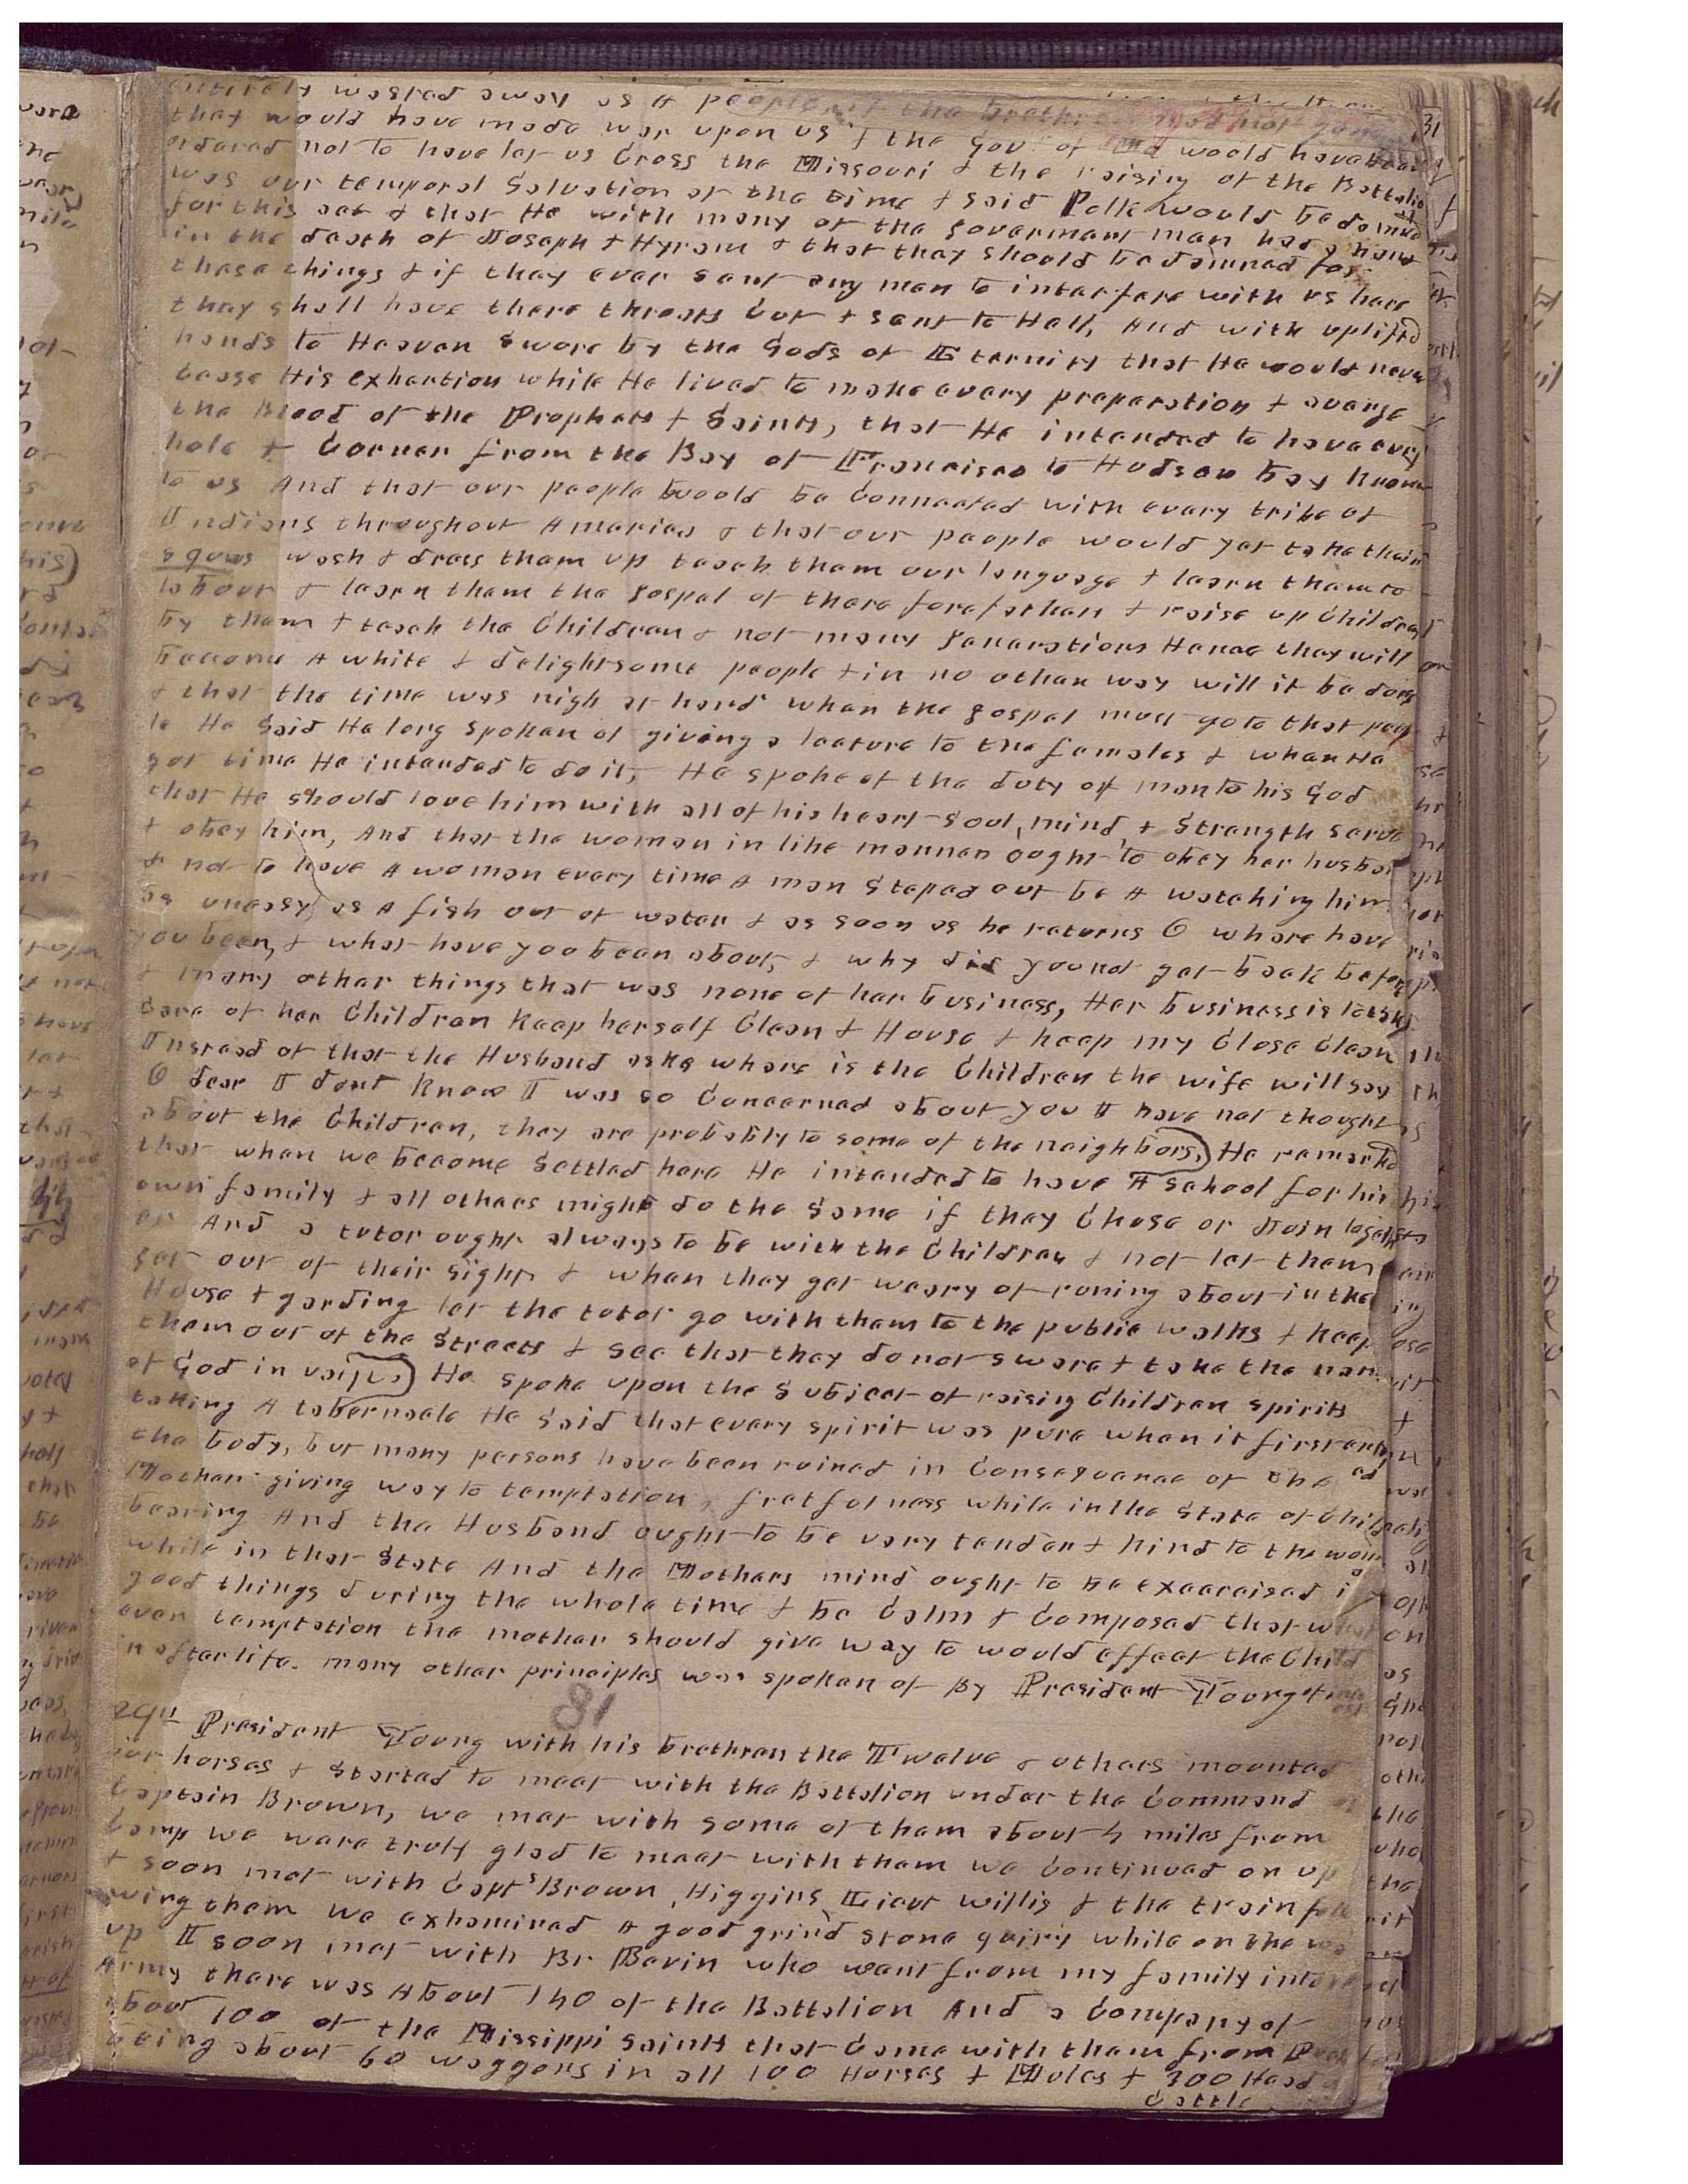 entirely wasted away as A people if the Brethren had not gone
they would have made war upon us & the Gov. of Mo would have been
ordered not to have let us Cross the Missouri & the raising of the Battalion
was our temporal Salvation at the time & said Polk would be damned
for this act & that He with many of the goverment men had a hand
in the death of Joseph & Hyram & that they should be damned for
these things & if they ever sent any men to interfere with us here
they shall have there throats Cut & sent to Hell, And with uplifted
hands to Heaven swore by the Gods of Eternity that He would never
cease His exhertion while He lived to make every preperation & avenge
the Blood of the Prophets & Saints, that He intended to have every
hole & Corner from the Bay of Francisco to Hudson bay Known
to us And that our people would be Connected with every tribe of
Indians throughout America & that our people would yet take their
squas wash & dress them up teach them our language & learn them to
labour & learn them the gospel of there forefathers & raise up Children
by them & teach the Children & not many generations Hence they will
become A white & delightsome people & in no other way will it be done
& that the time was nigh at hand when the gospel must go to that peop
le He Said He long spoken of giving a lecture to the females & when He
got time He intended to do it, He spoke of the duty of man to his God
that He should love him with all of his heart soul, mind, & Strength serve
& obey him, And that the woman in like manner ought to obey her husband
& not to have A woman every time A man steped out be A watching him
as uneasy as A fish out of water & as soon as he returns O whare have
you been, & what have you been about, & why did you not get back before
& many other things that was none of her business, Her business is to take
care of her Children Keep herself Clean & House & keep my Close Clean
Instead of that the Husband asks where is the Children the wife will say
O dear I dont Know I was so Concerned about you I have not thought
about the Children, they are probably to some of the neighbors.) He remarked
that when we become Settled here He intended to have A School for his
own family & all others might do the Same if they Chose or Join together
And a tutor ought always to be with the Children & not let them
get out of their sight & when they get weary of runing about in the
House & garding let the tutor go with them to the public walks & keep
them out of the Streets & See that they do not sware & take the name
of God in vain.) He spoke upon the Subject of raising Children spirits
taking A tabernacle He Said that every spirit was pure when it first enter
ed
the body, but many persons have been ruined in Consequence of the
Mother giving way to temptation, fretfulness while in the State of Child
bearing And the Husband ought to be very tender & kind to the woman
while in that State And the Mothers mind ought to be exercised in
good things during the whole time & be Calm & Composed that what
ever temptation the mother should give way to would effect the Child
in after life. many other principles was spoken of By President Young at
81
29th President Young with his brethren the Twelve & others mounted
our horses & Started to meet with the Battalion under the Command of
Captain Brown, we met with some of them about 4 miles from
Camp we ware truly glad to meet with them we Continued on up
& soon met with Capts Brown, Higgins, Lieut willis & the train follo
wing them we exhamined A good grind stone quiry while on the way
up I soon met with Br Bevin who went from my family into the
Army there was About 140 of the Battalion And a Company of
about 100 of the Missippi Saints that Came with them from
being about 60 waggons in all 100 Horses & Mules & 300 Head
Cattle